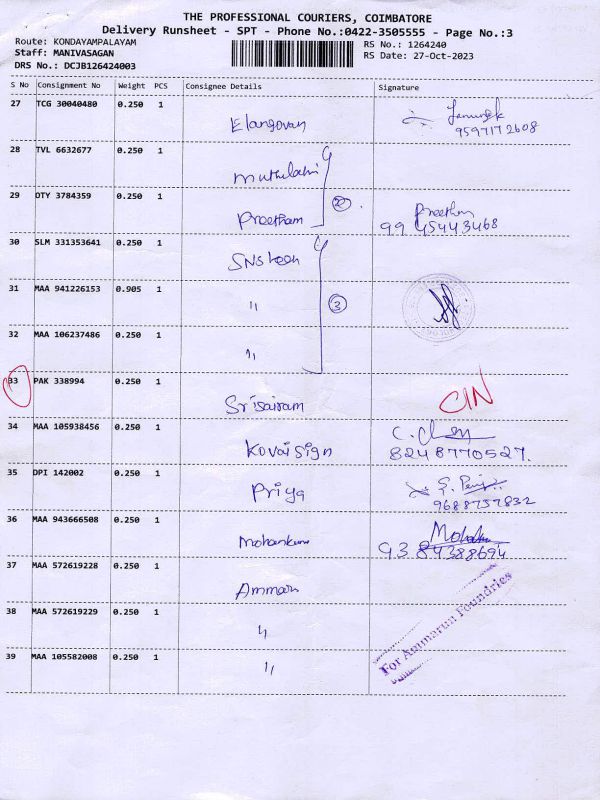 THE PROFESSIONAL COURIERS, COIMBATORE
Delivery Runsheet - SPT - Phone No.:0422-3505555 - Page No.:3
Route: KONDAYAMPALAYAM
RS No.: 1264240
Staff: MANIVASAGAN
RS Date: 27-Oct-2023
DRS No.: DCJB126424003
S No Consignment No Weight PCS Consignee Details Signature
27 TCG 30040480 0.250 1
Elangovan
9597172608
28 TVL 6632677 0.250 1
29 OTY 3784359 0.250 1
Preetham 2 Preetham
99 45443468
30 SLM 331353641 0.250 1
31 MAA 941226153 0.905 1
" 3
32 MAA 106237486 0.250 1
"
33 PAK 338994 0.250 1
Srisairam CIN
34 MAA 105938456 0.250 1
Kovai Sign
8248770527.
35 DPI 142002 0.250 1
Priya
9688757832
36 MAA 943666508 0.250 1
37 MAA 572619228 0.250 1
38 MAA 572619229 0.250 1
"
For Ammarun Foundries
39 MAA 105582008 0.250 1
"